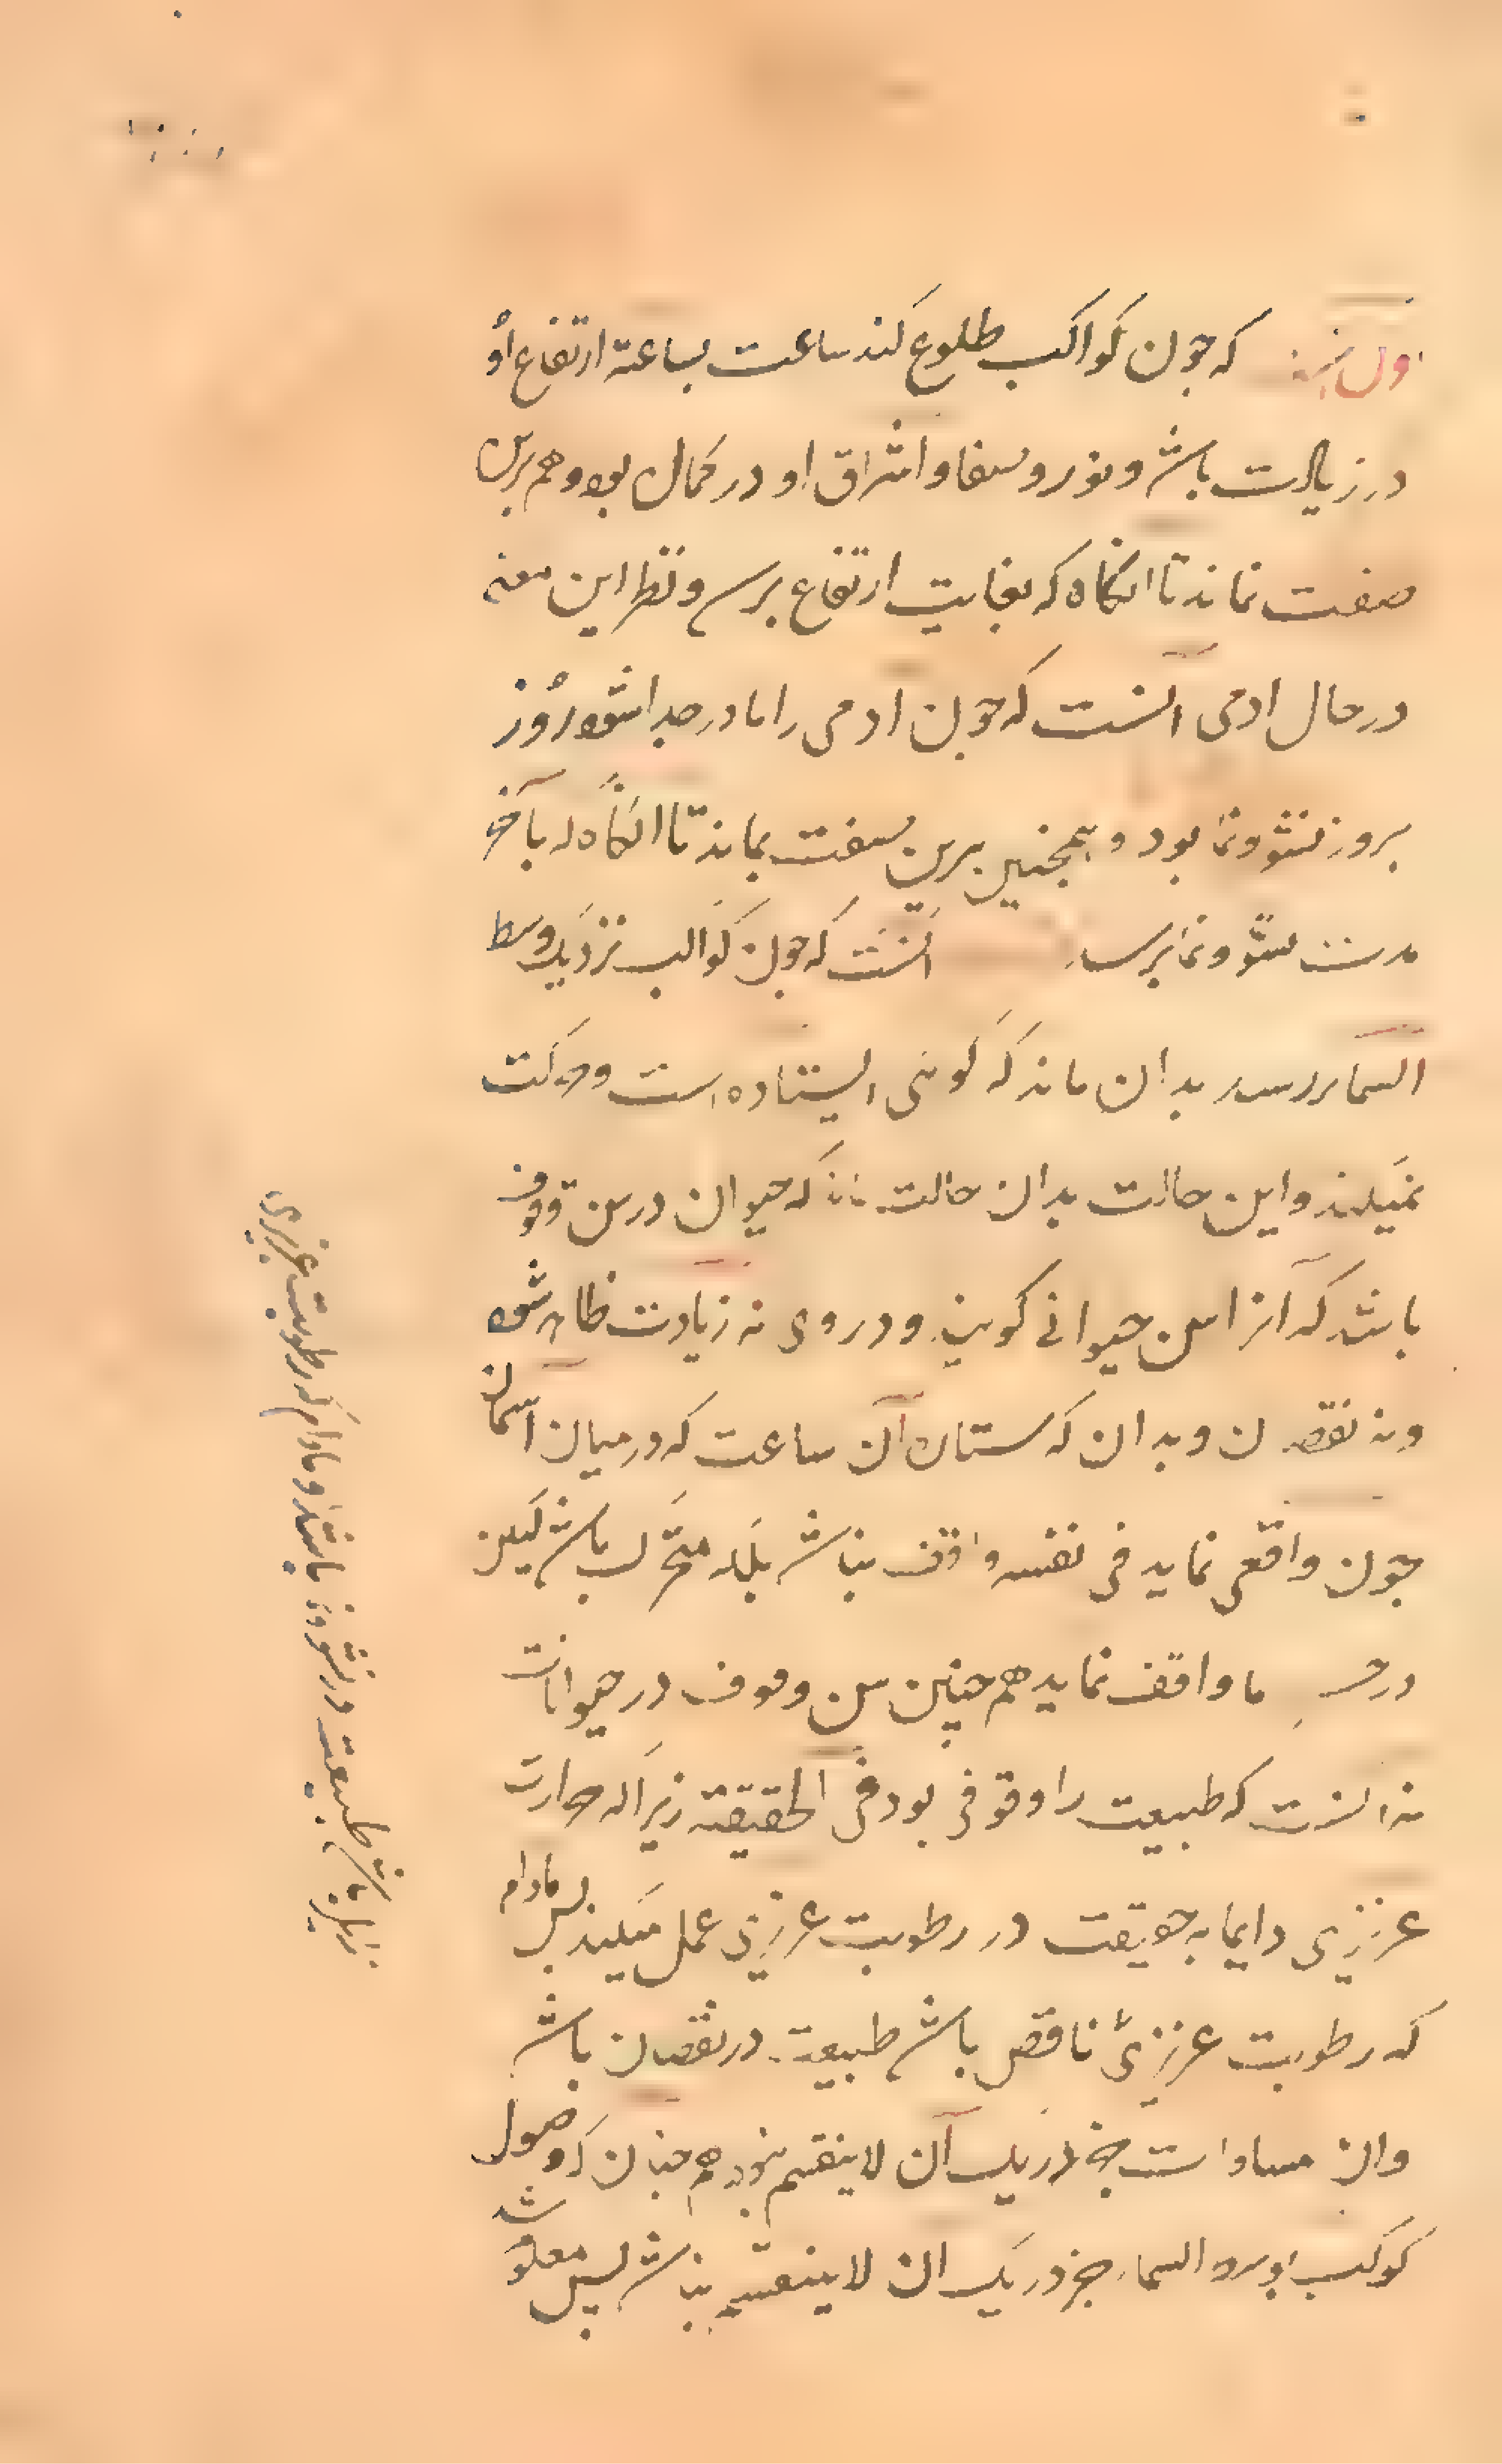 اول که جون کواکب طلوع کند ساعت بساعة ارتفاع او
در زیادت باشد و نور و صفا و اشراق او در کمال بود و هم برین
صفت نماند تا انگاه که بغایت ارتفاع برسد و نظر این معنی
در حال ادمی انست که جون ادمی را مادر جدا شود روز
بروز نشو و نما بود و همجنین برین صفت بماند تا انگاه که بآخر
مدت نشو و نما برسد انست که جون کواکب نزدیک وسط
السما رسد بدان ماند که گوئی ایستاده است و حرکت
نمیکند و این حالت بدان حالت ماند که حیوان در سن وقوف
باشد که آنرا سن حیوانی گویند و در وی نه زیادت ظاهر شود
و نه نقصان و بدان که ستاره آن ساعت که در میان آسمان
جون واقفی نماید فی نفسه واقف نباشد بلکه متحرک باشد لیکن
در حس ما واقف نماید هم چنین سن وقوف در حیوانات
نه انست که طبیعت را وقوفی بود فی الحقیقة زیرا که حرارت
عزیزی دایما به حقیقت در رطوبت عزیزی عمل میکند بس مادام
که رطوبت عزیزی ناقص باشد طبیعت در نقصان باشد
وان مساوات جز در یک آن لا ینقسم نبود هم جنان که وصول
کوکب بوسط السماء جز در یک ان لا ینقسم نباشد بس معلوم شد
باشد طبیعت در نشو و نما باشد و مادام که رطوبت عزیزی